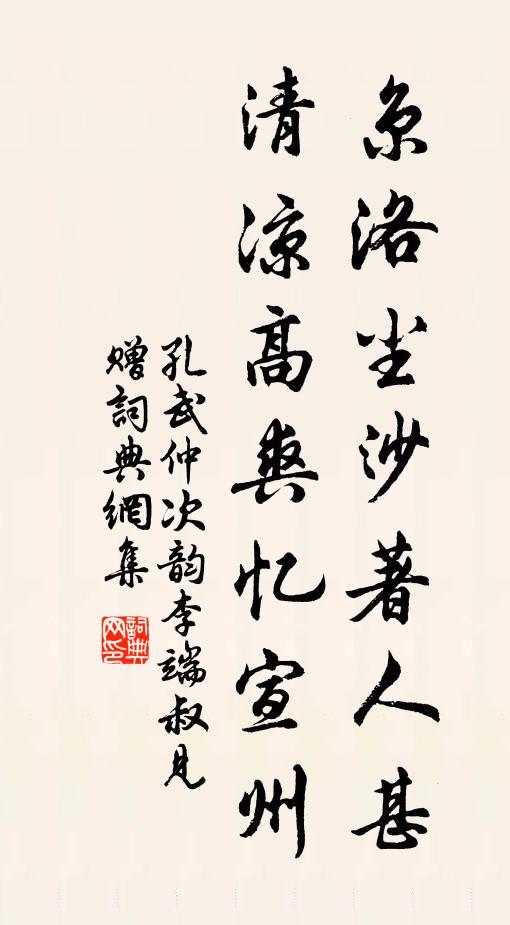 京洛尘沙著人甚
清凉高爽忆宣州
孔武仲次韵李端叔见
赠詞典網集
詞典
网印